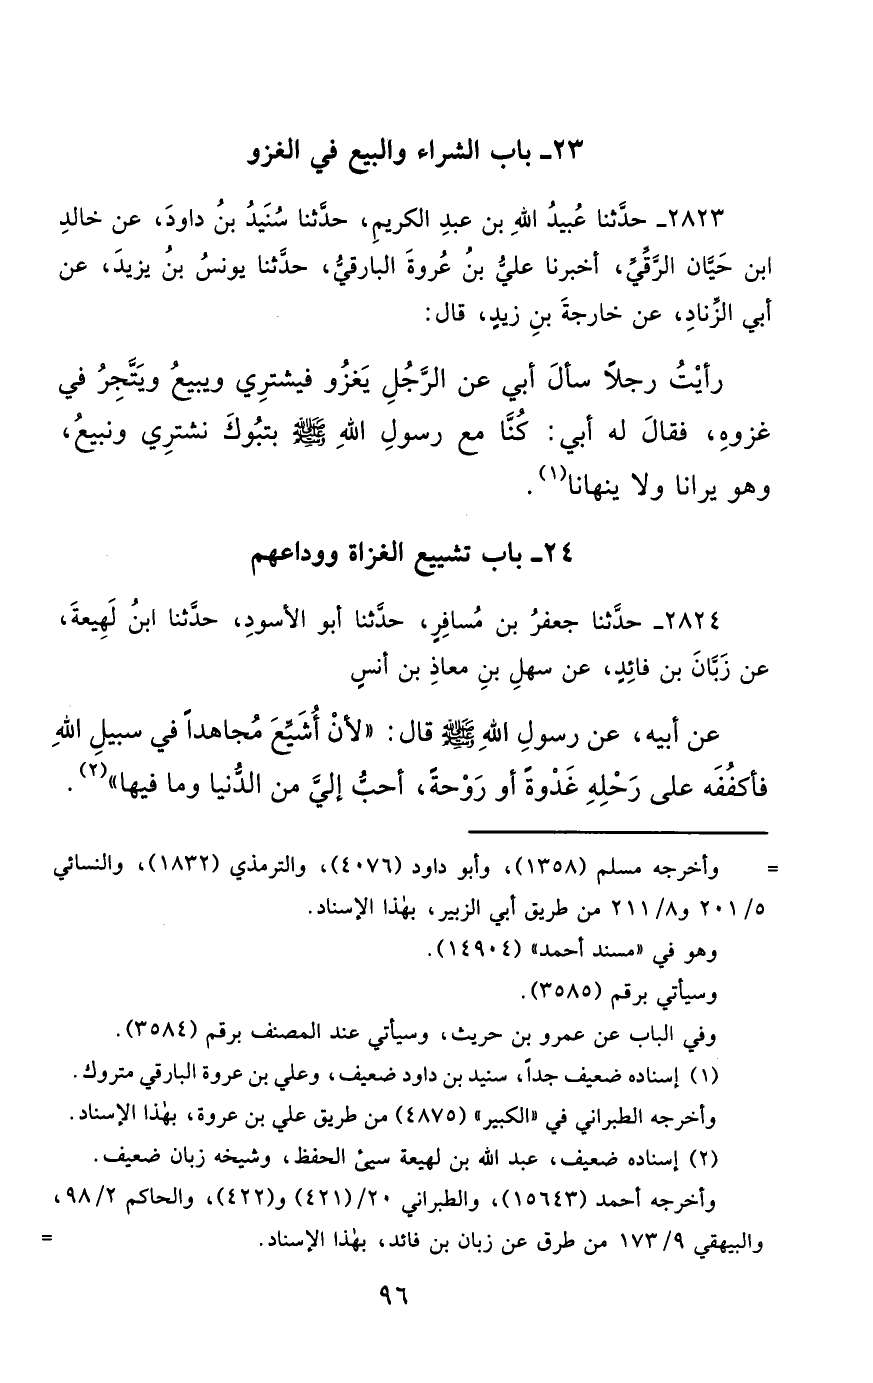 ٢٣ـ باب الشراء والبيع في الغزو
٢٨٢٣ـ حدَّثنا عُبيدُ اللهِ بن عبدِ الكريمِ، حدَّثنا سُنَيدُ بنُ داودَ، عن خالدِ
ابن حَيَّان الرَّقِّيِّ، أخبرنا عليُّ بنُ عُروةَ البارقيُّ، حدَّثنا يونسُ بنُ يزيدَ، عن
أبي الزِّنادِ، عن خارجةَ بنِ زيدٍ، قال:
رأيْتُ رجلاً سألَ أبي عن الرَّجُلِ يَغزُو فيشترِي ويبيعُ ويَتَّجِرُ في
غزوهِ، فقالَ له أبي: كُنَّا مع رسولِ اللهِ ﷺ بتبُوكَ نشترِي ونبيعُ،
وهو يرانا ولا ينهانا(١).
٢٤ـ باب تشييع الغزاة ووداعهم
٢٨٢٤ـ حدَّثنا جعفرُ بن مُسافِرٍ، حدَّثنا أبو الأسودِ، حدَّثنا ابنُ لَهِيعةَ،
عن زَبَّانَ بن فائِدٍ، عن سهلِ بنِ معاذِ بن أنسٍ
عن أبيه، عن رسولِ اللهِ ﷺ قال: «لأنْ أُشَيِّعَ مُجاهداً في سبيلِ اللهِ
فأكفُفَه على رَحْلِهِ غَدْوةً أو رَوْحةً، أحبُّ إليَّ من الدُّنيا وما فيها»(٢).
= وأخرجه مسلم (١٣٥٨)، وأبو داود (٤٠٧٦)، والترمذي (١٨٣٢)، والنسائي
٢٠١/٥ و٢١١/٨ من طريق أبي الزبير، بهٰذا الإسناد.
وهو في «مسند أحمد» (١٤٩٠٤).
وسيأتي برقم (٣٥٨٥).
وفي الباب عن عمرو بن حريث، وسيأتي عند المصنف برقم (٣٥٨٤).
(١) إسناده ضعيف جداً، سنيد بن داود ضعيف، وعلي بن عروة البارقي متروك.
وأخرجه الطبراني في «الكبير» (٤٨٧٥) من طريق علي بن عروة، بهٰذا الإسناد.
(٢) إسناده ضعيف، عبد الله بن لهيعة سيئ الحفظ، وشيخه زبان ضعيف.
وأخرجه أحمد (١٥٦٤٣)، والطبراني ٢٠/(٤٢١) و(٤٢٢)، والحاكم ٩٨/٢،
والبيهقي ١٧٣/٩ من طرق عن زبان بن فائد، بهٰذا الإسناد. =
٩٦